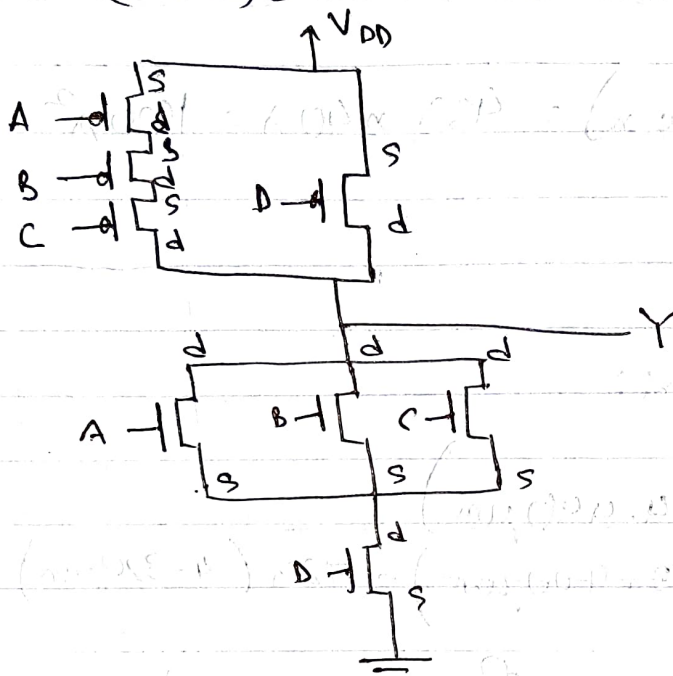 V_DD
s
A d
s
B d
s
C d
s
D d
Y
d d d
A B C
s s s
d
D
s